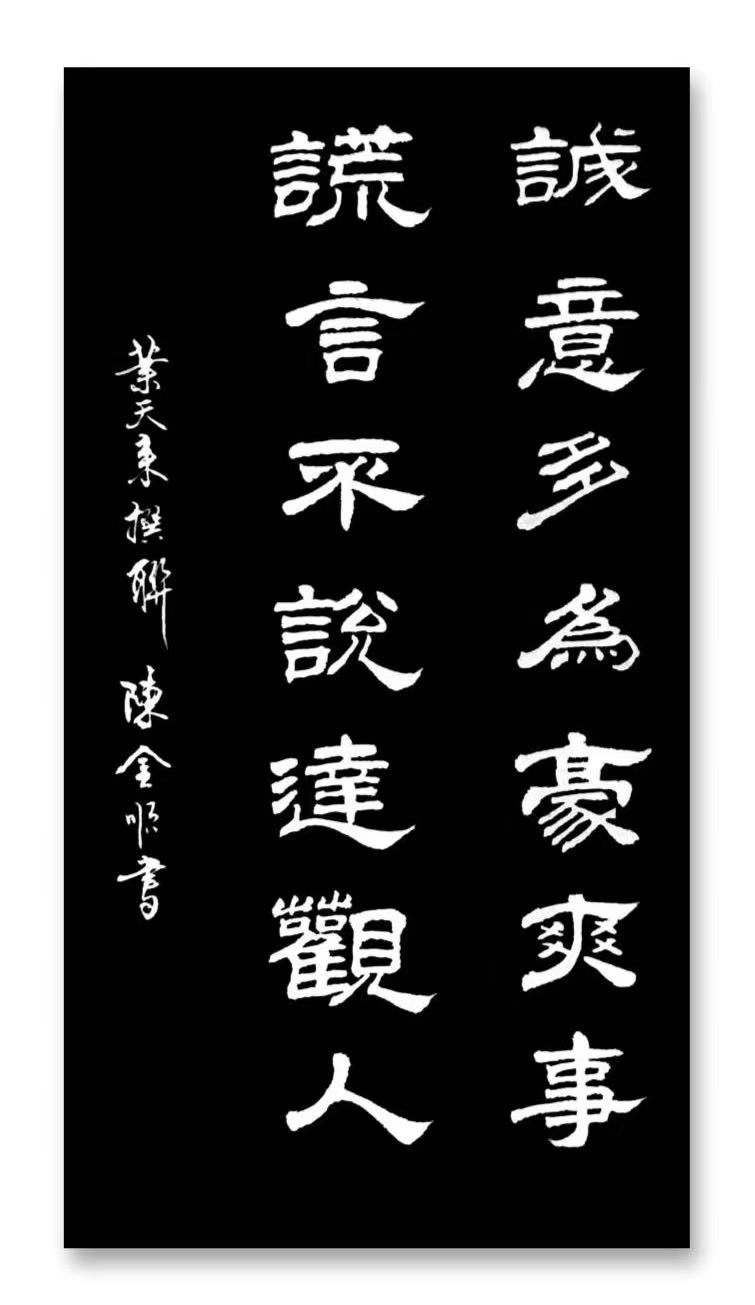 誠意多為豪爽事
謊言不說達觀人
葉天來撰聯 陳金順書